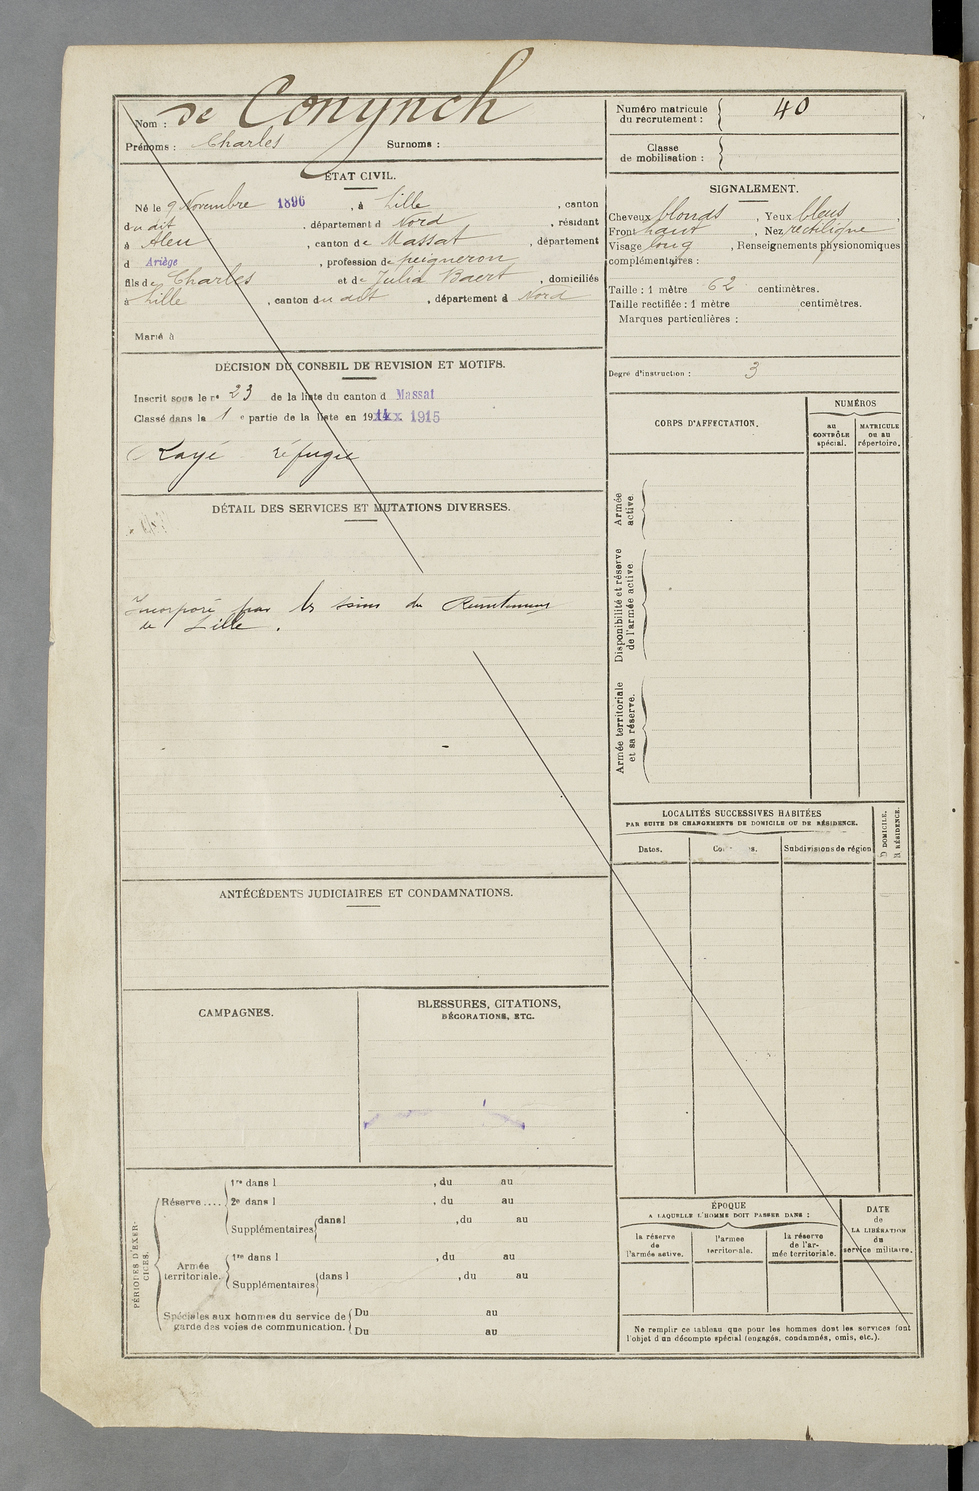 Nom : de Conynch
Prénoms : Charles Surnoms :
Numéro matricule du recrutement : 40
Classe de mobilisation :
ÉTAT CIVIL.
Né le 9 Novembre 1896, à Lille, canton
dudit, département d Nord, résidant
à Aleu, canton de Massat, département
d Ariège, profession de peigneron
fils de Charles et de Julia Baert, domiciliés
à Lille, canton dudit, département d Nord
Marié à
SIGNALEMENT.
Cheveux blonds, Yeux bleus,
Front haut, Nez rectiligne
Visage long, Renseignements physionomiques
complémentaires :
Taille : 1 mètre 62 centimètres.
Taille rectifiée : 1 mètre centimètres.
Marques particulières :
Degré d'instruction : 3
DÉCISION DU CONSEIL DE REVISION ET MOTIFS.
Inscrit sous le n° 23 de la liste du canton d Massat
Classé dans la 1 e partie de la liste en 1915
Rayé réfugié
DÉTAIL DES SERVICES ET MUTATIONS DIVERSES.
Incorporé par les soins du Recrutement
de Lille.
CORPS D'AFFECTATION.
NUMÉROS
au CONTRÔLE spécial.
MATRICULE ou au répertoire.
Armée active.
Disponibilité et réserve de l'armée active.
Armée territoriale et sa réserve.
LOCALITÉS SUCCESSIVES HABITÉES
PAR SUITE DE CHANGEMENTS DE DOMICILE OU DE RÉSIDENCE.
Dates.
Subdivisions de région
D DOMICILE.
R RÉSIDENCE.
ANTÉCÉDENTS JUDICIAIRES ET CONDAMNATIONS.
CAMPAGNES.
BLESSURES, CITATIONS,
DÉCORATIONS, ETC.
PÉRIODES D'EXERCICES.
Réserve ....
1re dans l , du au
2e dans l , du au
Supplémentaires dans l , du au
Armée territoriale.
1re dans l , du au
Supplémentaires dans l , du au
Spéciales aux hommes du service de garde des voies de communication.
Du au
Du au
ÉPOQUE
A LAQUELLE L'HOMME DOIT PASSER DANS :
la réserve de l'armée active.
l'armée territoriale.
la réserve de l'armée territoriale.
DATE de LA LIBÉRATION du service militaire.
Ne remplir ce tableau que pour les hommes dont les services font
l'objet d'un décompte spécial (engagés, condamnés, omis, etc.).